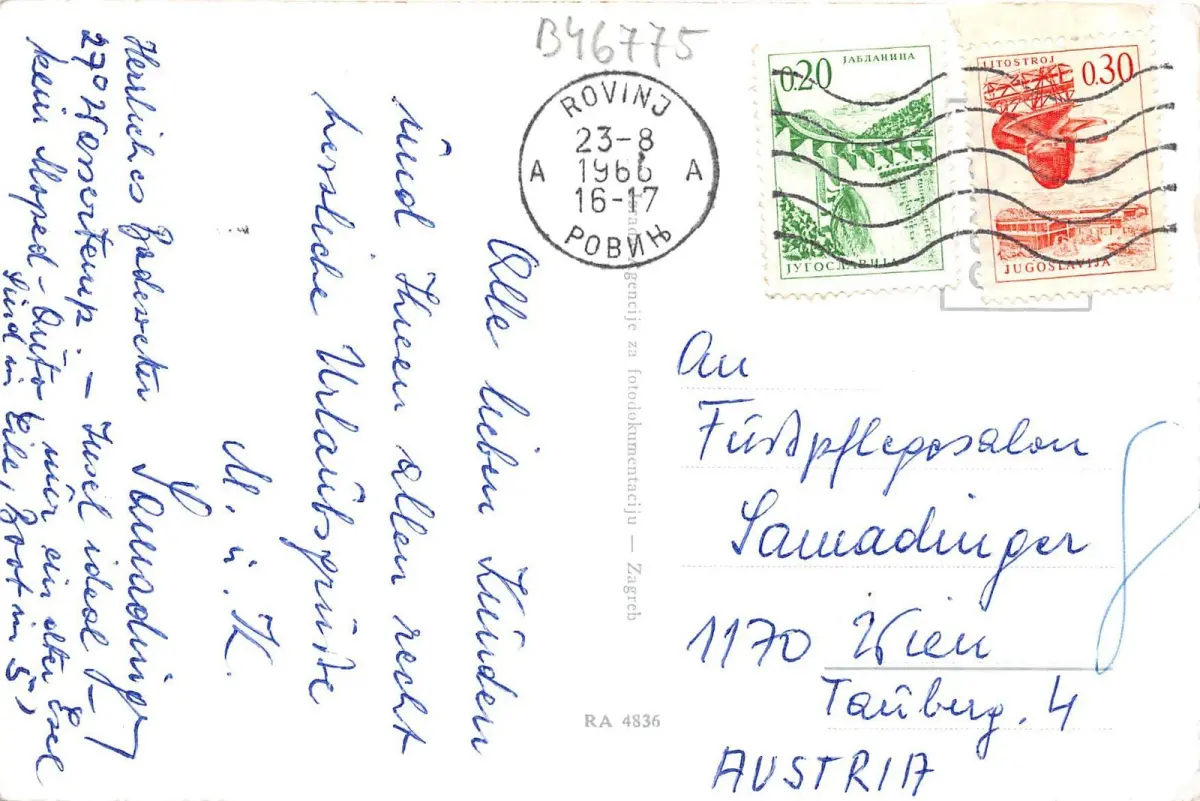 B46775
ROVINJ
23-8
1966
16-17
A A
РОВИЊ
0.20
ЈАБЛАНИЦА
ЈУГОСЛАВИЈА
LITOSTROJ
0.30
JUGOSLAVIJA
Alle lieben Kunden
und Ihnen allen recht
herzliche Urlaubsgrüße
M. u. K.
Samadinger
Herrliches Badewetter
27° Wassertemp. – Insel ideal –
kein Moped – Auto, nur ein alter Esel
Sind in Eile, Boot in 5",
agencije za fotodokumentaciju — Zagreb
RA 4836
An
Fußpflegesalon
Samadinger
1170 Wien
Tauberg. 4
AUSTRIA